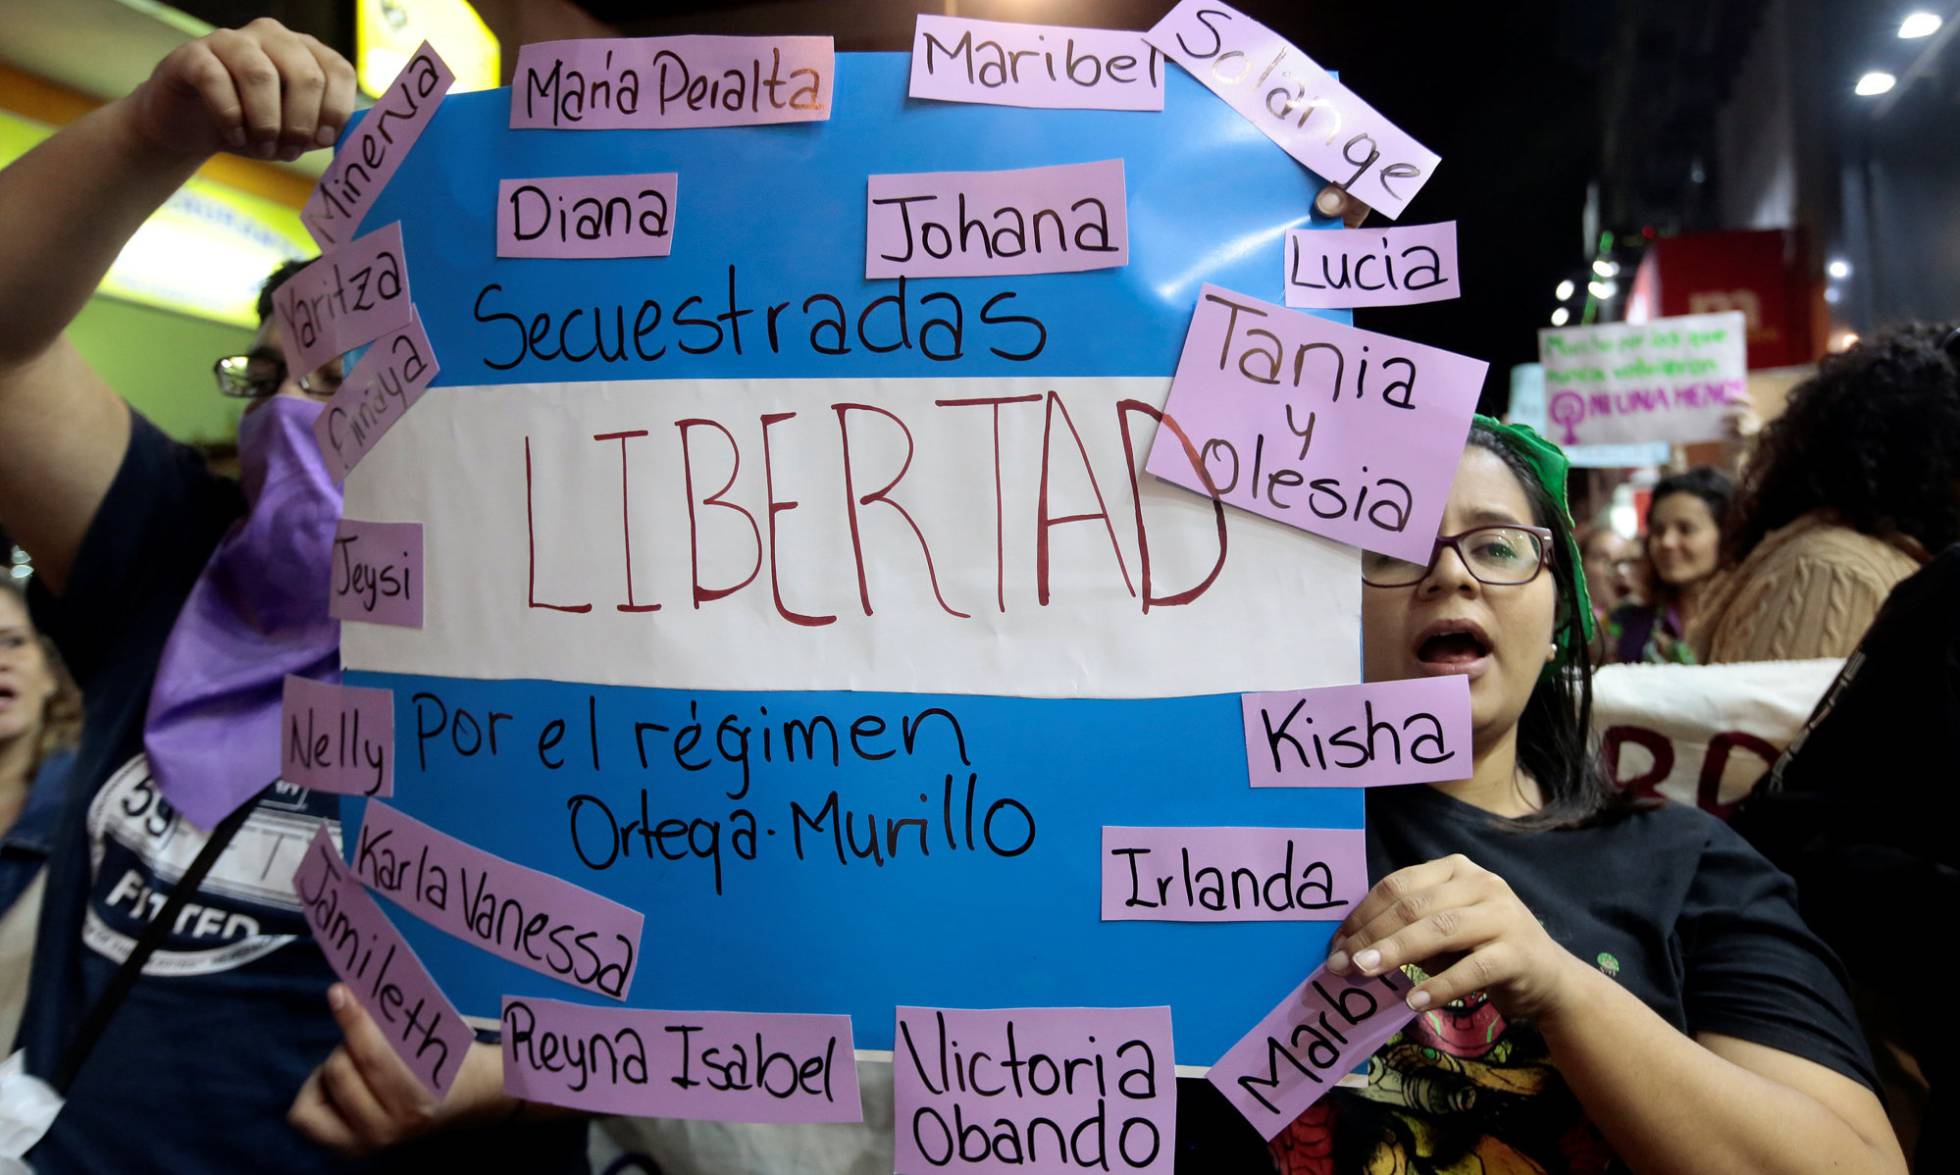 Minerva
María Peralta
Maribel
Solange
Yaritza
Diana
Johana
Lucia
Amaya
Secuestradas
Tania
y
olesia
LIBERTAD
Jeysi
Nelly
Por el régimen
Ortega-Murillo
Kisha
Irlanda
Karla Vanessa
Jamileth
Reyna Isabel
Victoria
Obando
Marbi
NI UNA MENOS
59
FITTED